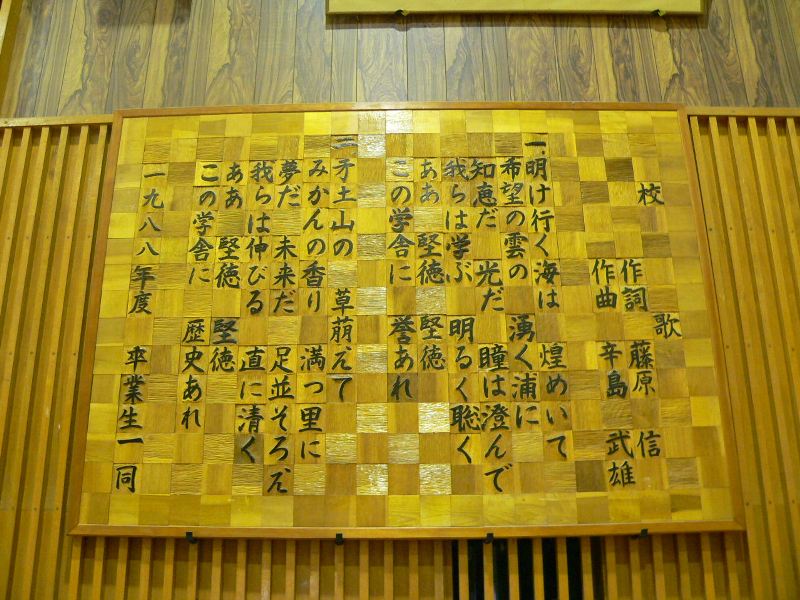 校 歌
作詞 藤原 信
作曲 辛島 武雄
一、明け行く海は 煌めいて
希望の雲の 湧く浦に
知恵だ 光だ 瞳は澄んで
我らは学ぶ 明るく聡く
ああ 堅徳 堅徳
この学舎に 誉あれ
二、矛土山の 草萠えて
みかんの香り 満つ里に
夢だ 未来だ 足並そろえ
我らは伸びる 直に清く
ああ 堅徳 堅徳
この学舎に 歴史あれ
一九八八年度 卒業生一同